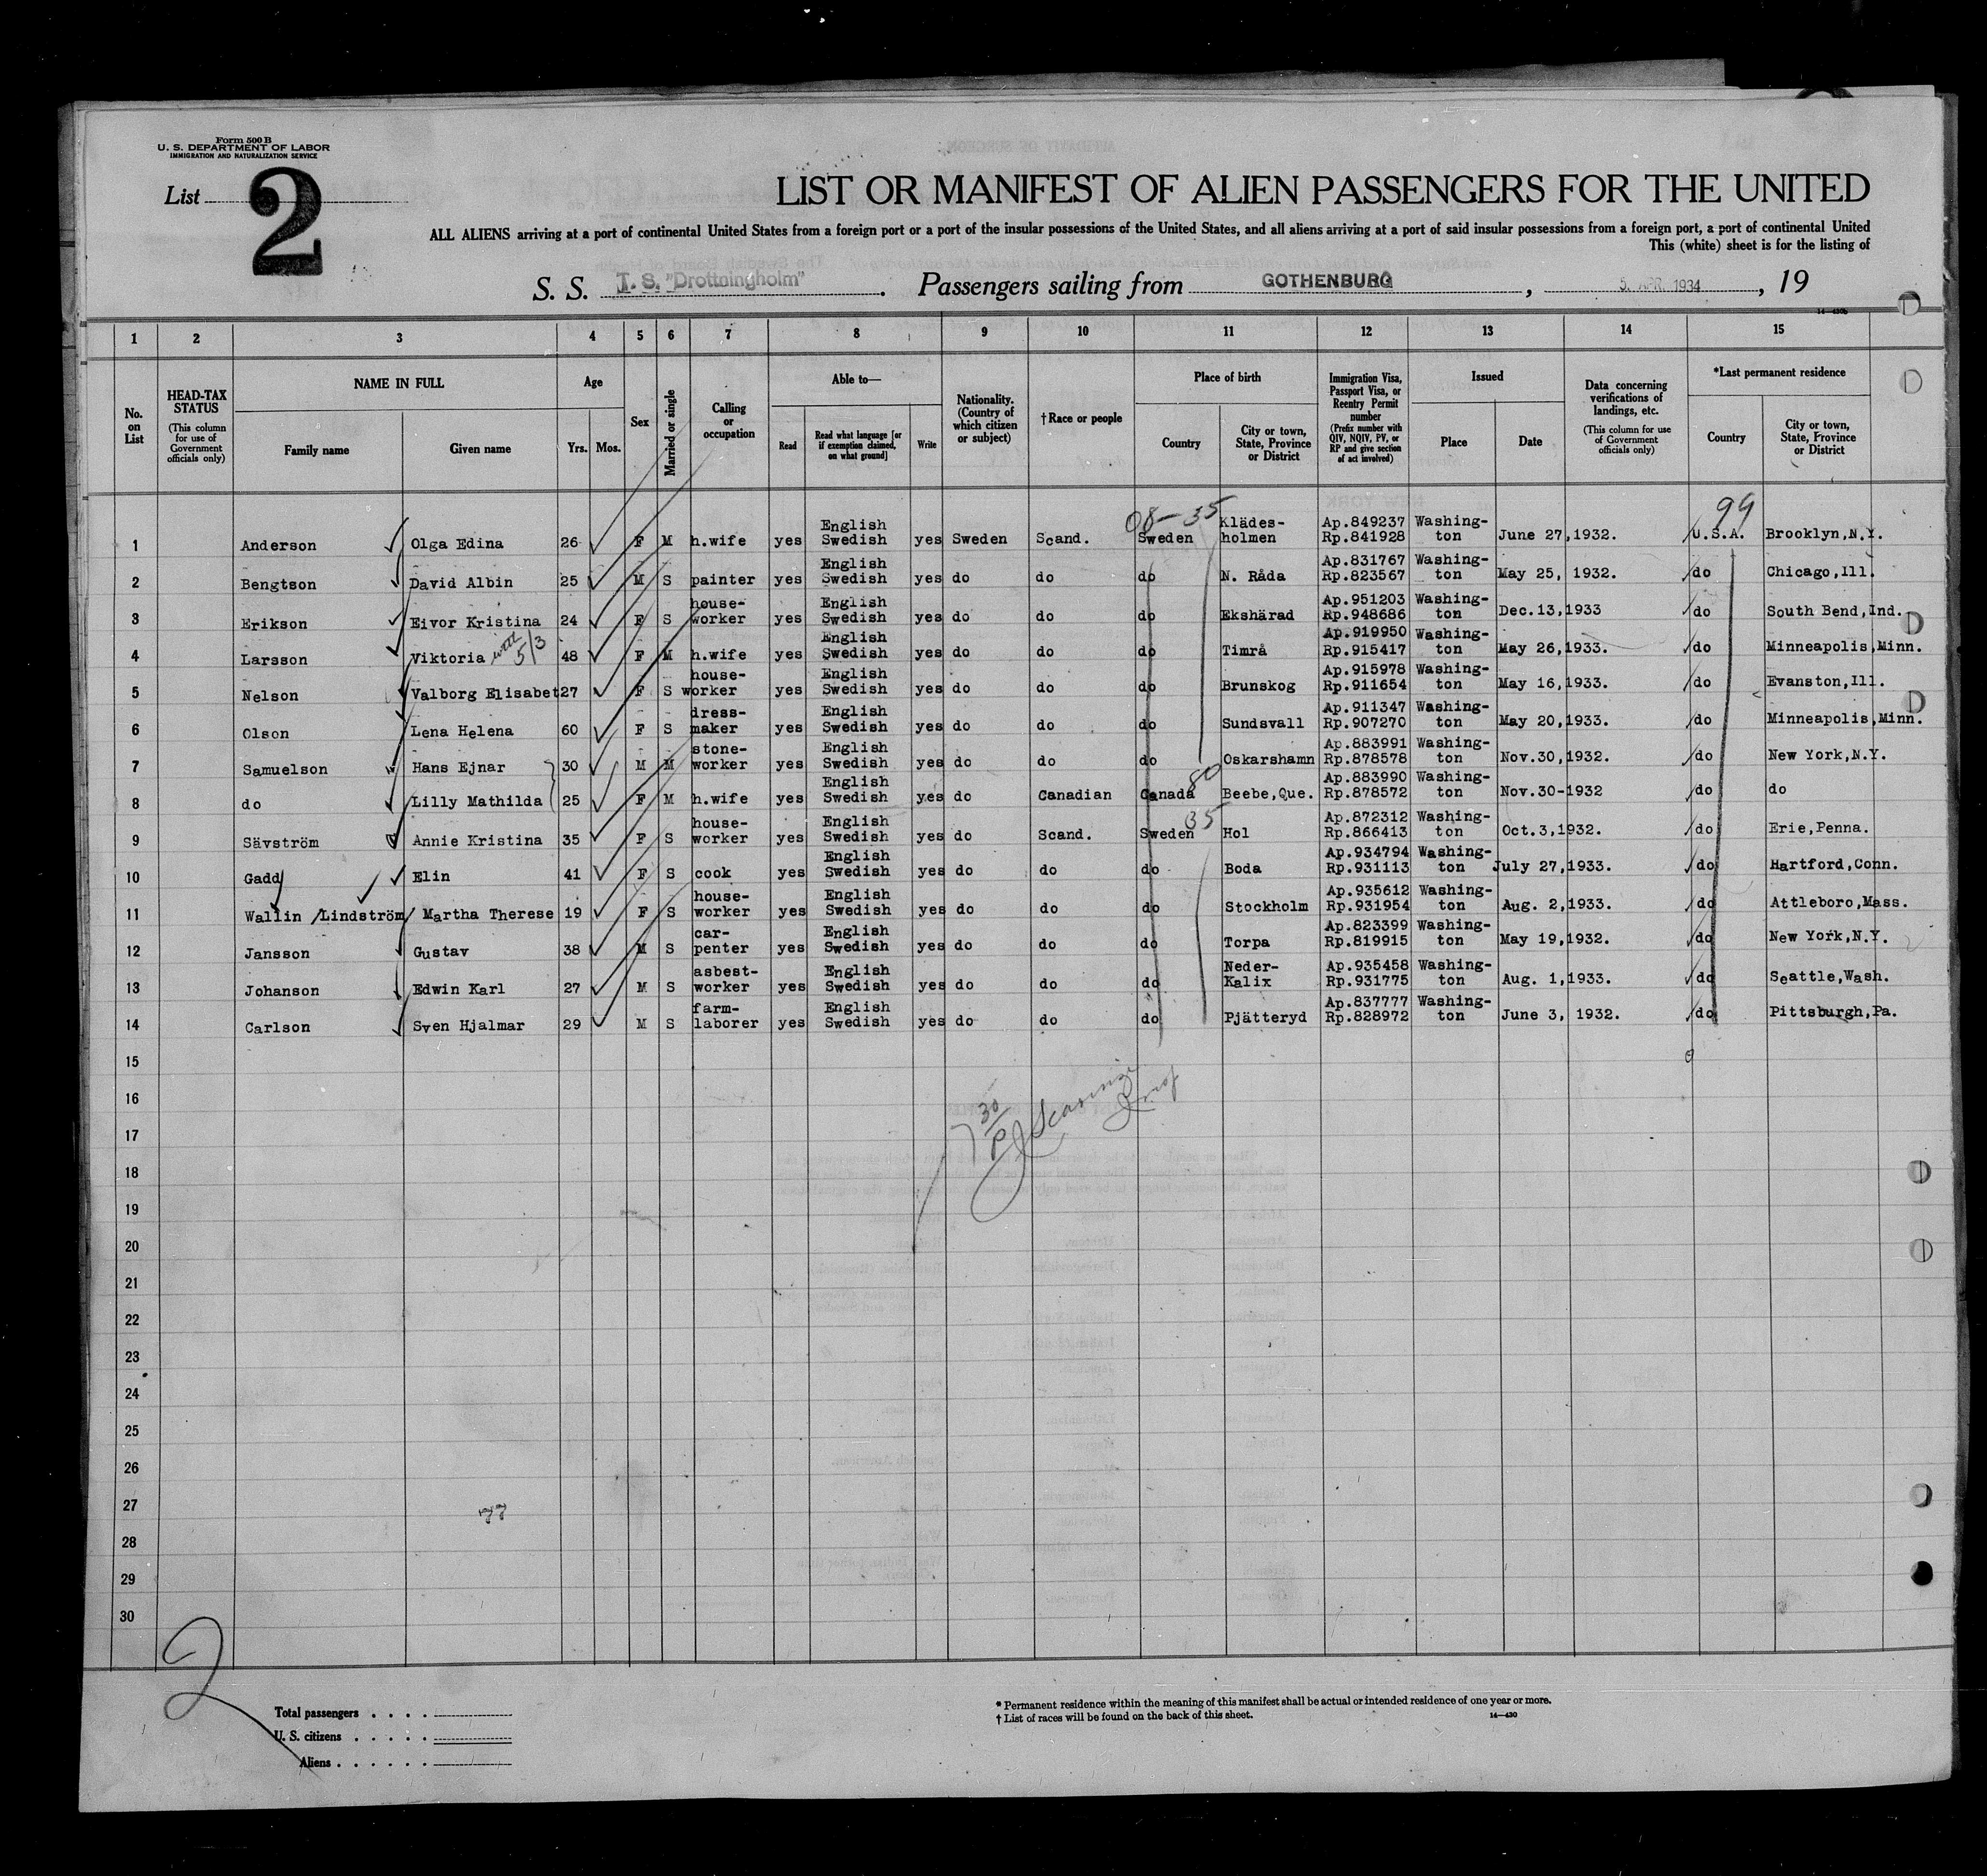 Form 500 B
U. S. DEPARTMENT OF LABOR
IMMIGRATION AND NATURALIZATION SERVICE
List 2
LIST OR MANIFEST OF ALIEN PASSENGERS FOR THE UNITED
ALL ALIENS arriving at a port of continental United States from a foreign port or a port of the insular possessions of the United States, and all aliens arriving at a port of said insular possessions from a foreign port, a port of continental United
This (white) sheet is for the listing of
S. S. T. S. "Drottningholm" . Passengers sailing from GOTHENBURG , 5. APR. 1934 , 19
14—430b
1 2 3 4 5 6 7 8 9 10 11 12 13 14 15
No. on List
HEAD-TAX STATUS (This column for use of Government officials only)
NAME IN FULL
Family name Given name
Age
Yrs. Mos.
Sex
Married or single
Calling or occupation
Able to—
Read Read what language [or if exemption claimed, on what ground] Write
Nationality. (Country of which citizen or subject)
†Race or people
Place of birth
Country City or town, State, Province or District
Immigration Visa, Passport Visa, or Reentry Permit number (Prefix number with QIV, NQIV, PV, or RP and give section of act involved)
Issued
Place Date
Data concerning verifications of landings, etc. (This column for use of Government officials only)
*Last permanent residence
Country City or town, State, Province or District
08-35 99
1 Anderson Olga Edina 26 F M h.wife yes English Swedish yes Sweden Scand. Sweden Klädes-holmen Ap.849237 Rp.841928 Washing-ton June 27,1932. U.S.A. Brooklyn,N.Y.
2 Bengtson David Albin 25 M S painter yes English Swedish yes do do do N. Råda Ap.831767 Rp.823567 Washing-ton May 25, 1932. do Chicago,Ill.
3 Erikson Eivor Kristina 24 F S house-worker yes English Swedish yes do do do Ekshärad Ap.951203 Rp.948686 Washing-ton Dec.13,1933 do South Bend,Ind.
4 Larsson Viktoria 5/3 48 F M h.wife yes English Swedish yes do do do Timrå Ap.919950 Rp.915417 Washing-ton May 26,1933. do Minneapolis,Minn.
5 Nelson Valborg Elisabet 27 F S house-worker yes English Swedish yes do do do Brunskog Ap.915978 Rp.911654 Washing-ton May 16,1933. do Evanston,Ill.
6 Olson Lena Helena 60 F S dress-maker yes English Swedish yes do do do Sundsvall Ap.911347 Rp.907270 Washing-ton May 20,1933. do Minneapolis,Minn.
7 Samuelson Hans Ejnar 30 M M stone-worker yes English Swedish yes do do do Oskarshamn Ap.883991 Rp.878578 Washing-ton Nov.30,1932. do New York,N.Y.
8 do Lilly Mathilda 25 F M h.wife yes English Swedish yes do Canadian Canada 80 Beebe,Que. Ap.883990 Rp.878572 Washing-ton Nov.30-1932 do do
9 Sävström Annie Kristina 35 F S house-worker yes English Swedish yes do Scand. Sweden 35 Hol Ap.872312 Rp.866413 Washing-ton Oct.3,1932. do Erie,Penna.
10 Gadd Elin 41 F S cook yes English Swedish yes do do do Boda Ap.934794 Rp.931113 Washing-ton July 27,1933. do Hartford,Conn.
11 Wallin /Lindström/ Martha Therese 19 F S house-worker yes English Swedish yes do do do Stockholm Ap.935612 Rp.931954 Washing-ton Aug. 2,1933. do Attleboro,Mass.
12 Jansson Gustav 38 M S car-penter yes English Swedish yes do do do Torpa Ap.823399 Rp.819915 Washing-ton May 19,1932. do New York,N.Y.
13 Johanson Edwin Karl 27 M S asbest-worker yes English Swedish yes do do do Neder-Kalix Ap.935458 Rp.931775 Washing-ton Aug. 1,1933. do Seattle,Wash.
14 Carlson Sven Hjalmar 29 M S farm-laborer yes English Swedish yes do do do Pjätteryd Ap.837777 Rp.828972 Washing-ton June 3, 1932. do Pittsburgh,Pa.
15
16
17
18
19
20
21
22
23
24
25
26
27
77
28
29
30
2
Total passengers . . . .
U. S. citizens . . . . .
Aliens . . . . . .
* Permanent residence within the meaning of this manifest shall be actual or intended residence of one year or more.
† List of races will be found on the back of this sheet.
14—430